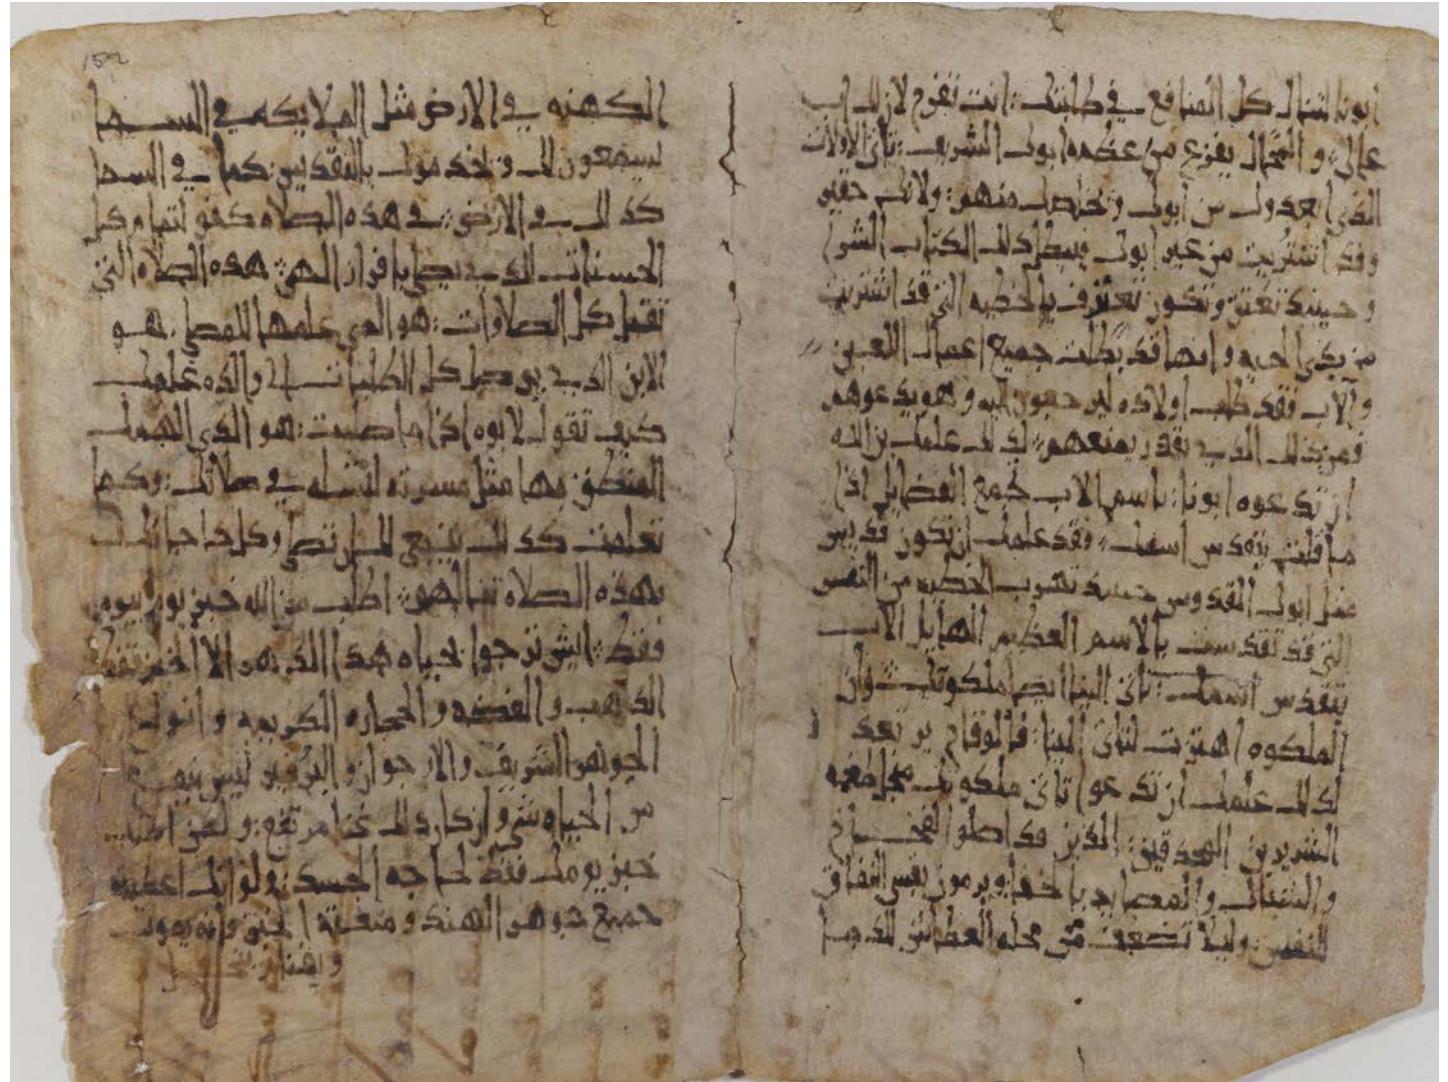 ابونا لتنال كل المنافع في طلبتك: انت تفرح لان لك اب
عالي: و المحال يفزع من عظمه ابوك الشريف: تاتي
الذي ابعدوك من ابوك و تخلصك منهم: ولانك حقير
وقد اشتريت من غير ابوك فيبطل ذلك الكتاب الشر
وحينيذ تعتق وتكون تعترف بالخطيه التي قد اشتريت
من يدي الحيه وايضا قد بطلت جميع اعمال اللعين
والاب فقد طلب اولاده ليرجعون اليه وهو يدعوهم
فمن ذلك الذي يقدر يمنعهم: لذلك علمك بن الله
ان تدعوه ابونا: باسم الاب تجمع الفضايل اذا
ما قلت يتقدس اسمك: فقد علمك ان تكون قديس
مثل ابوك القدوس حينيذ تهرب الخطيه من النفس
التي قد تقدست بالاسم العظيم الهايل الاب
يتقدس اسمك: تاتي الينا ايضا ملكوتك: وان
الملكوه اهتزت لتاتي الينا:
لذلك علمك ان تدعوا تاتي ملكوتك
الشريرين: الذين قد
والشباك والمصايد بالخفا ويرمون بغير اشفاق
للنفس: وليلا تضعف من
الكهنه في الارض مثل الملايكه في السما
يسمعون لك و يخدموك بالتقديس: كما في السما
كذلك في الارض: في هذه الصلاه كفو لتمام كل
الحسنات الذي يصلي بافراز الحق: هذه الصلاه التي
تقبل كل الصلاوات: هو الذي علمها للمصلي هو
الابن الذي يوصل كل الطلبات الي والده علمك
كيف تقول لابوه اذا ما صليت: هو الذي الهمك
المنطق بها مثل مسرته لتسله في صلاتك: وكما
تعلمت كذلك ينبغي لك ان تصلي وكل حاجاتك
بهذه الصلاه تنالهن: اطلب من الله خبز يوم بيوم
فقط: ايش ترجوا بحياه هذا الدنيه الا الخبز فقط
الذهب و الفضه و الحجاره الكريمه
الجوهر الشريف والارجوان و البرفير ليس ينفع
من الحياه شي وان كان ذلك غنا مرتفع: ولكن اطلب
خبز يومك فقط لحاجه الجسد: ولو انك اعطيته
جميع جوهر الهند ومنعته الخبز فانه يموت